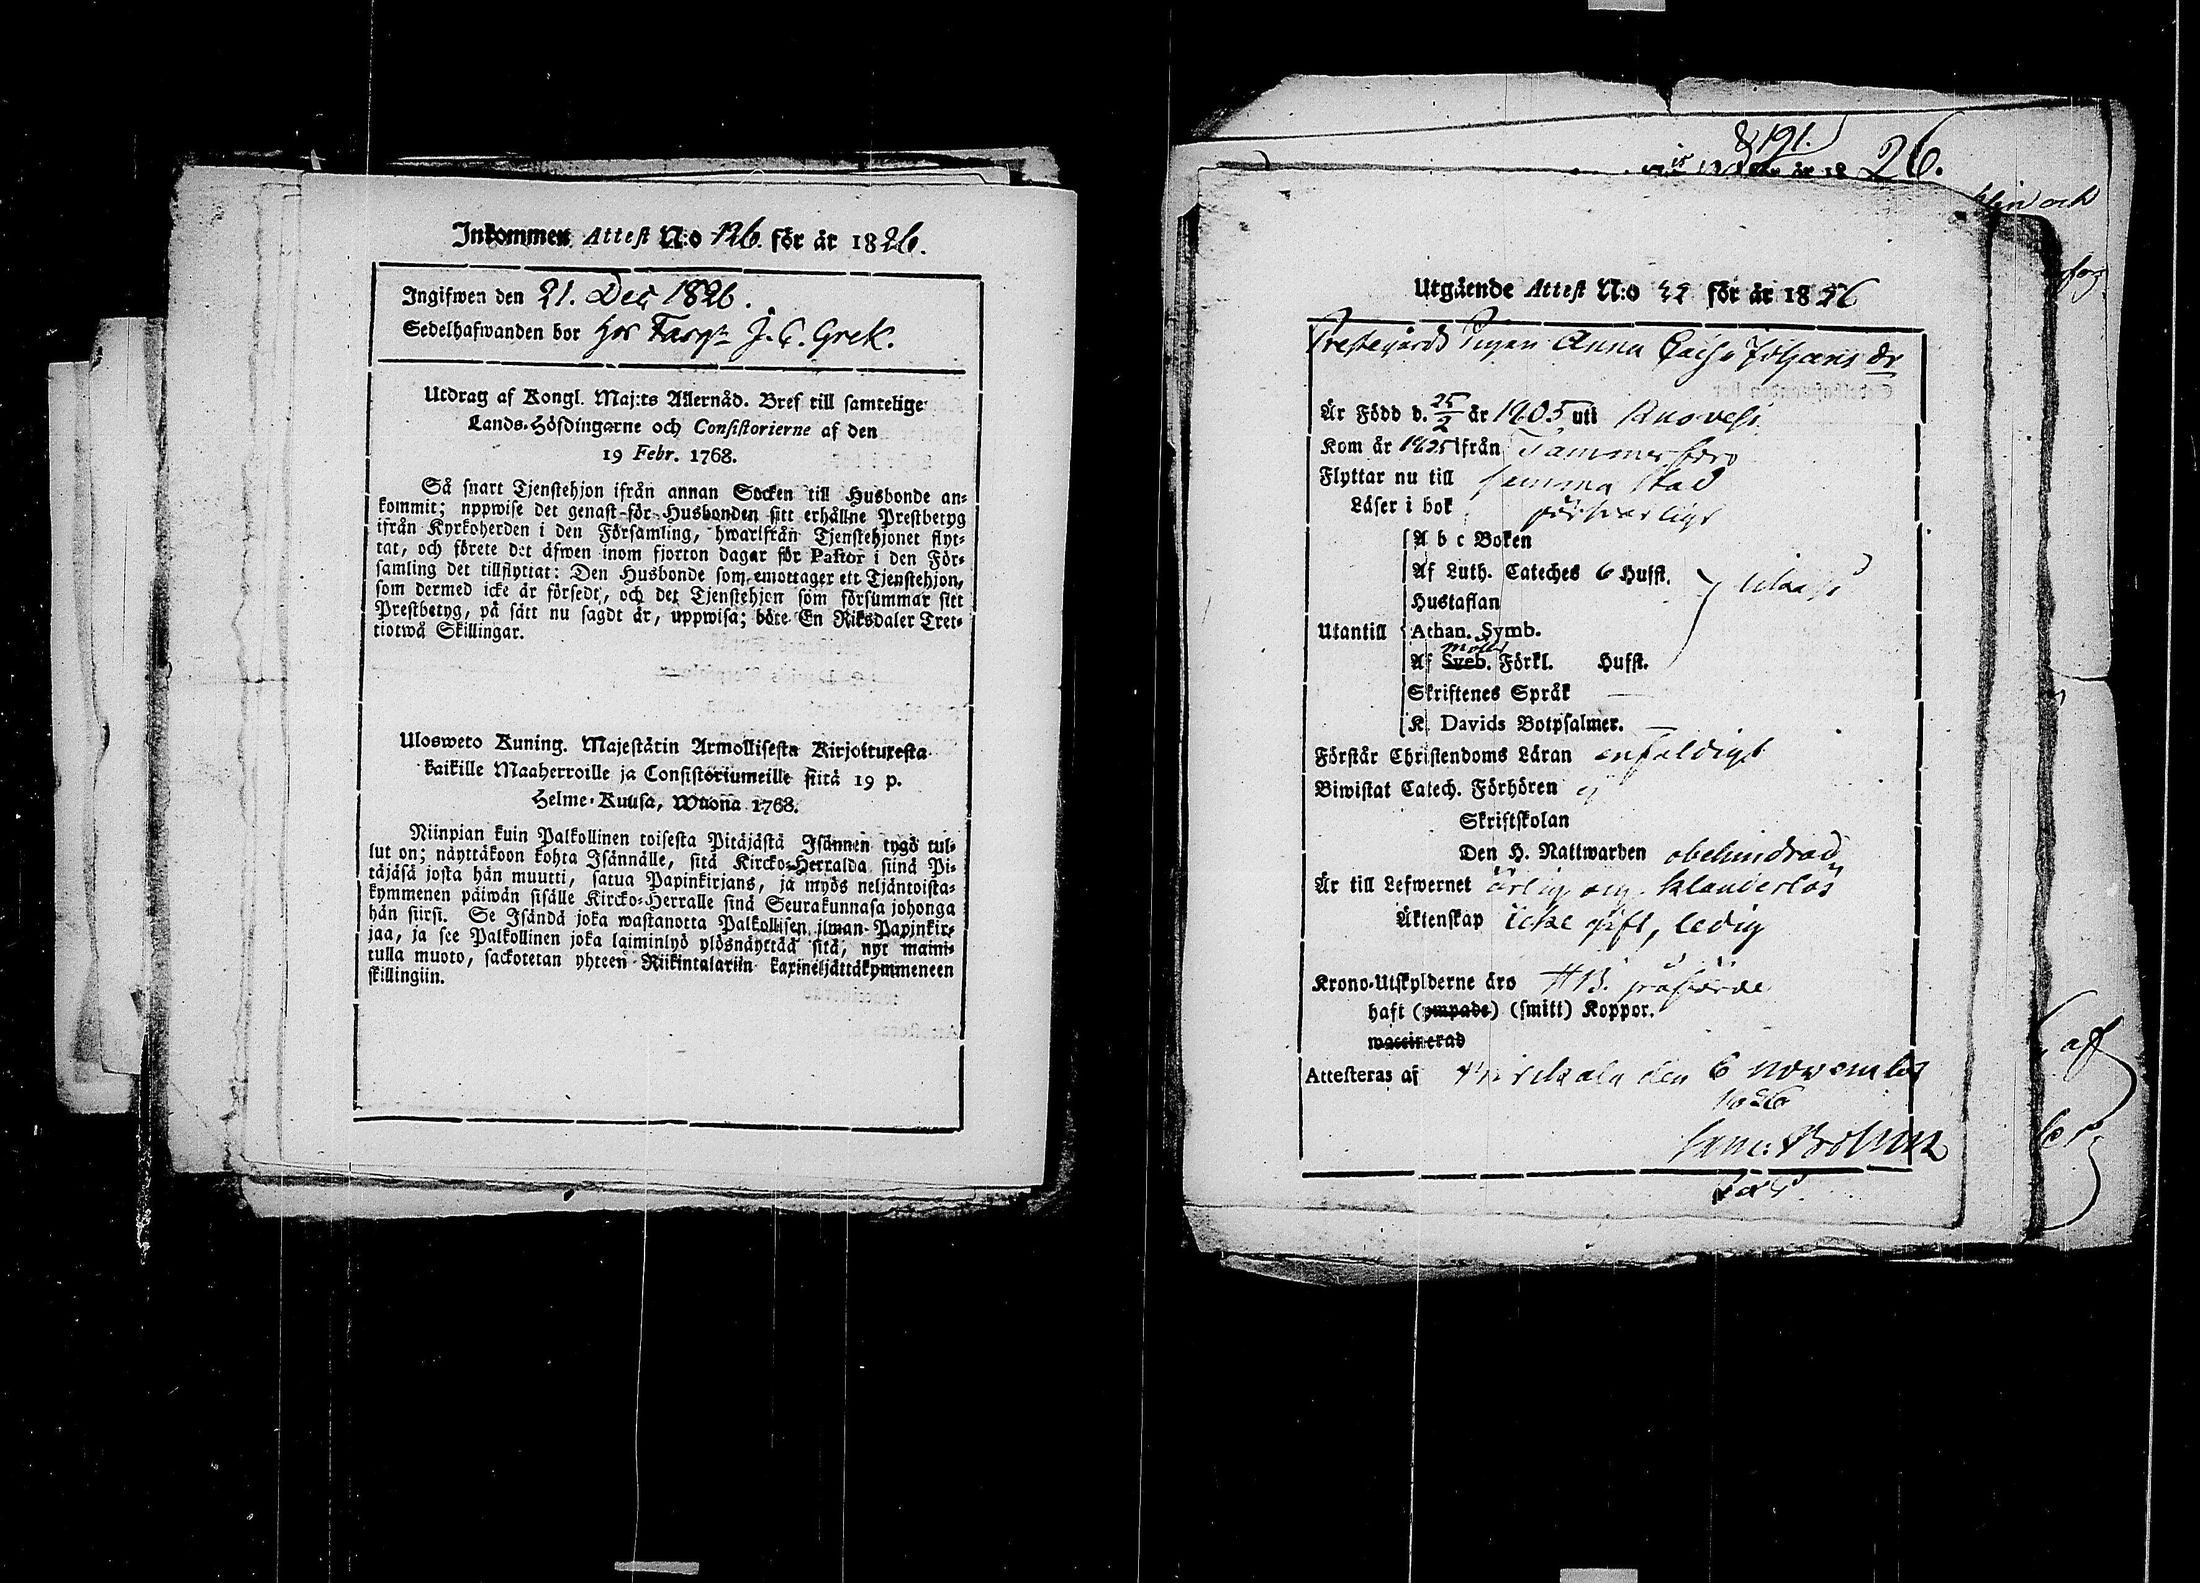 Inkommen Attest N:o 126. för år 1826.
Ingifwen den 21. Dec 1826.
Sedelhafwanden bor hos J. C. Grek.
Utdrag af Kongl. Maj:ts Allernåd. Bref till samtelige
Lands-Höfdingarne och Consistorierne af den
19 Febr. 1768.
Så snart Tjenstehjon ifrån annan Socken till Husbonde an-
kommit; uppwise det genast för Husbonden sitt erhållne Prestbetyg
ifrån Kyrkoherden i den Församling, hwarifrån Tjenstehjonet flyt-
tat, och förete det äfwen inom fjorton dagar för Pastor i den För-
samling det tillflyttat: Den Husbonde som emottager ett Tjenstehjon,
som dermed icke är försedt, och det Tjenstehjon som försummar sitt
Prestbetyg, på sätt nu sagdt är, uppwisa; böte En Riksdaler Tret-
tiotwå Skillingar.
Ulosweto Kuning. Majestätin Armollisesta Kirjoituxesta
kaikille Maaherroille ja Consistoriumeille siitä 19 p.
Helme-Kuusa, Wuona 1768.
Niinpian kuin Palkollinen toisesta Pitäjästä Isännen tygö tul-
lut on; näyttäkoon kohta Isännälle, sitä Kircko-Herralda siinä Pi-
täjäsä josta hän muutti, satua Papinkirjans, ja myös neljäntoista-
kymmenen päiwän sisälle Kircko-Herralle sinä Seurakunnasa johonga
hän siirsi. Se Isändä joka wastanotta Palkollisen ilman Papinkir-
jaa, ja see Palkollinen joka laiminlyö ylösnäyttää sitä, nyt maini-
tulla muoto, sackotetan yhteen Riikintalariin kaxineljättäkymmeneen
skillingiin.
&191.
26.
Utgående Attest N:o för år 1826
Prestegårds Pigan Anna Caisa Johans dr
Är Född d. 25/2 år 1805 uti Ruovesi
Kom år 1825 ifrån Tammerfors
Flyttar nu till samma stad
Läser i bok försvarligt
A b c Boken
Af Luth. Cateches 6 Hufst.
Hustaflan
Utantill Athan. Symb.
Af Sveb. Förkl. Hufst.
Skriftenes Språk —
K. Davids Botpsalmer. —
Förstår Christendoms Läran enfaldigt
Biwistat Catech. Förhören ej
Skriftskolan
Den H. Nattwarden obehindrad
Är till Lefwernet ärlig och klanderlös
Äktenskap icke gift, ledig
Krono-Utskylderne äro påförde
haft (ympade) (smitt) Koppor.
waccinerad
Attesteras af Birckala den 6 november
1826